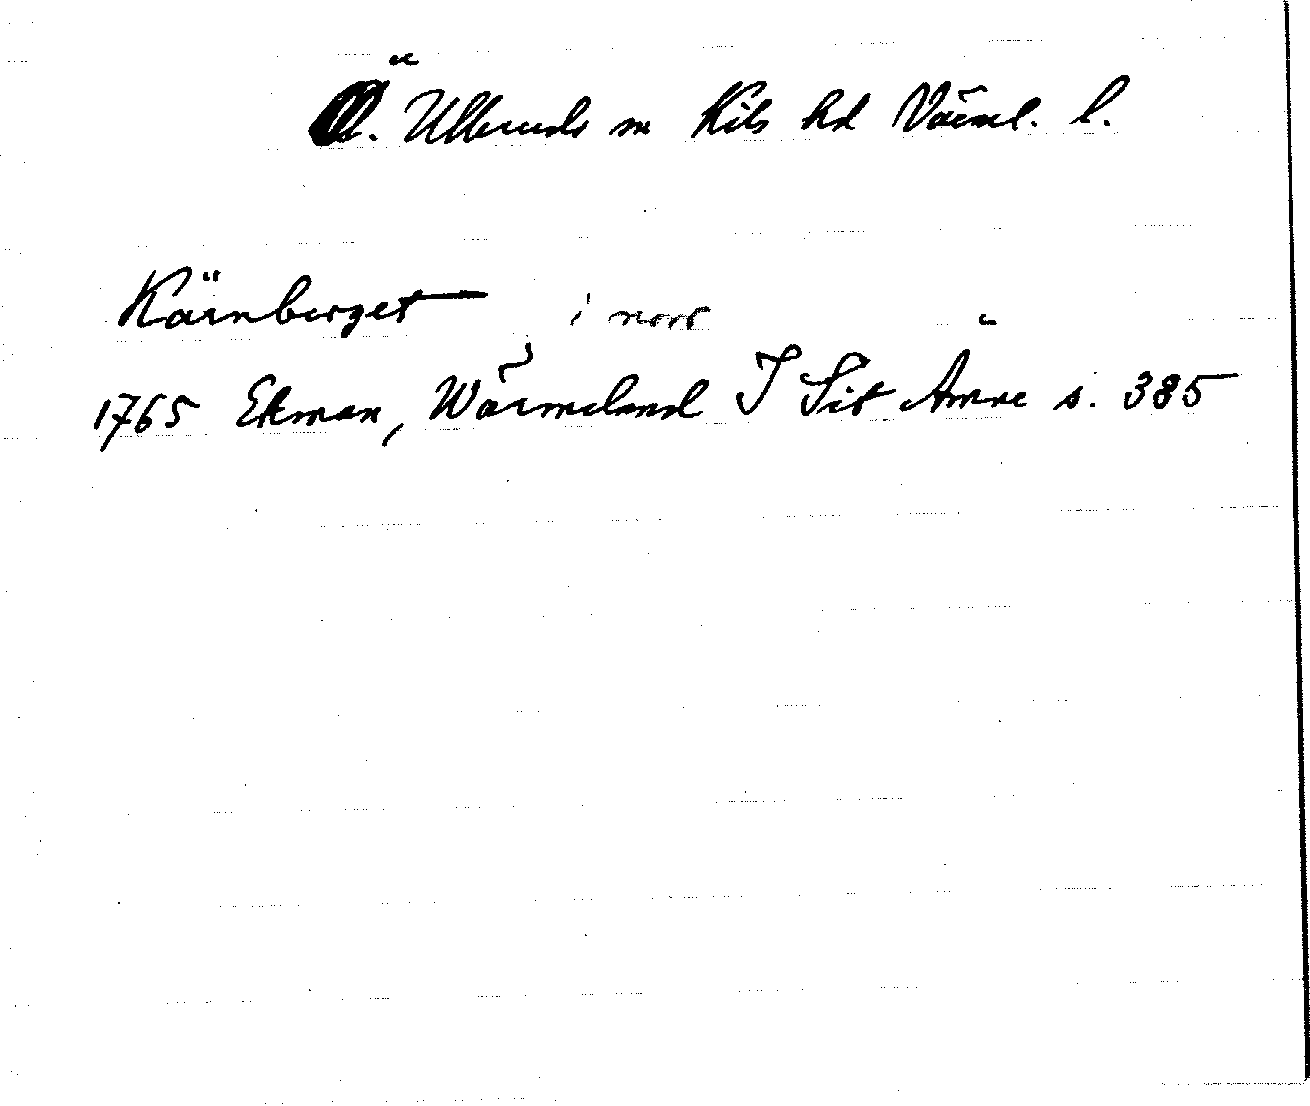 Ö. Ulleruds sn Kils hd Värml. l.
Kärnberget i norr
1765 Ekman, Wärmeland I Sit Ämne s. 385